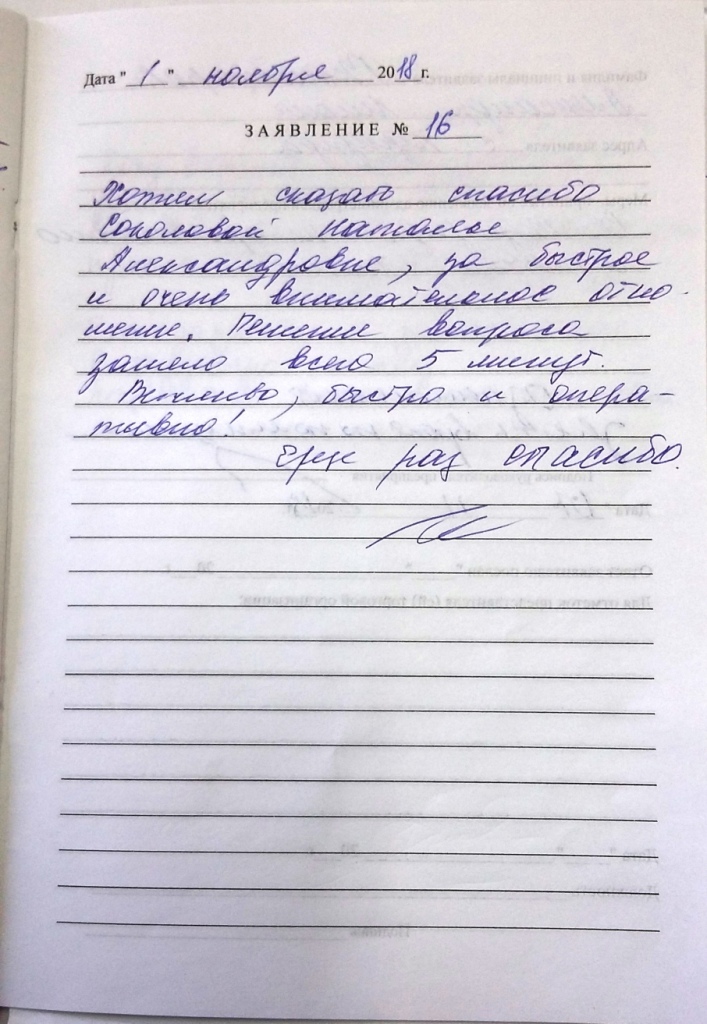 Дата " 1 " ноября 2018 г.
ЗАЯВЛЕНИЕ № 16
Хотим сказать спасибо
Соколовой Наталье
Александровне, за быстрое
и очень внимательное отно-
шение. Решение вопроса
заняло всего 5 минут.
Вежливо, быстро и опера-
тивно!
Ещё раз спасибо.